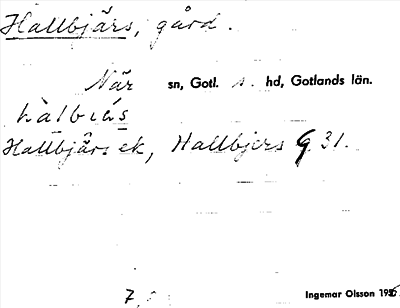 Hallbjärs, gård.
När sn, Gotl. s. hd, Gotlands län.
hàlbiás
Hallbjärs ek, Hallbjers G. 31.
7,
Ingemar Olsson 195